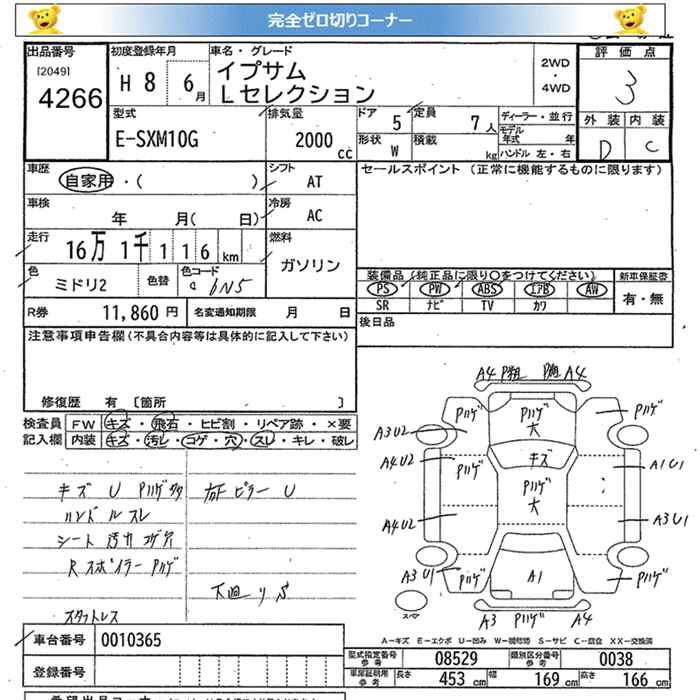 完全ゼロ切りコーナー
出品番号 初度登録年月 車名・グレード 評価点
[2049] イプサム 2WD・4WD 3
4266 H 8 6月 Lセレクション 外装 内装
型式 排気量 ドア 5 定員 7人 ディーラー・並行 D C
E-SXM10G 2000cc 形状 W 積載 kg モデル年式 年
ハンドル 左・右
車歴 シフト セールスポイント (正常に機能するものに限ります)
自家用・( ) AT
車検 冷房
年 月( 日) AC
走行 燃料
16万 1千 1 1 6 km ガソリン
色 色替 色コード 装備品 (純正品に限り○をつけてください) 新車保証書
ミドリ2 6N5 PS PW ABS エアB AW 有・無
SR ナビ TV カワ
R券 11,860円 名変通知期限 月 日 後日品
注意事項申告欄 (不具合内容等は具体的に記入して下さい)
修復歴 有 [箇所 ]
検査員 FW キズ・飛石・ヒビ割・リペア跡・×要
記入欄 内装 キズ・汚レ・コゲ・穴・スレ・キレ・破レ
キズ U Pハゲ
ピラー U
ハンドルスレ
シート 汚れ コゲ穴
Rスポイラー Pハゲ
下廻り S
スタットレス
A4 P別 P別 A4
Pハゲ Pハゲ 大 Pハゲ
A3U2 キズ
A4U2 Pハゲ Pハゲ 大 A1U1
A4U2 A3U1
A3U1 Pハゲ A1 Pハゲ
スペア
A3 Pハゲ A4
A-キズ E-エクボ U-凹み W-補修跡 S-サビ C-腐食 XX-交換済
車台番号 0010365
型式指定番号 参考 08529 類別区分番号 参考 0038
登録番号
車庫証明用 参考 長さ 453 cm 幅 169 cm 高さ 166 cm